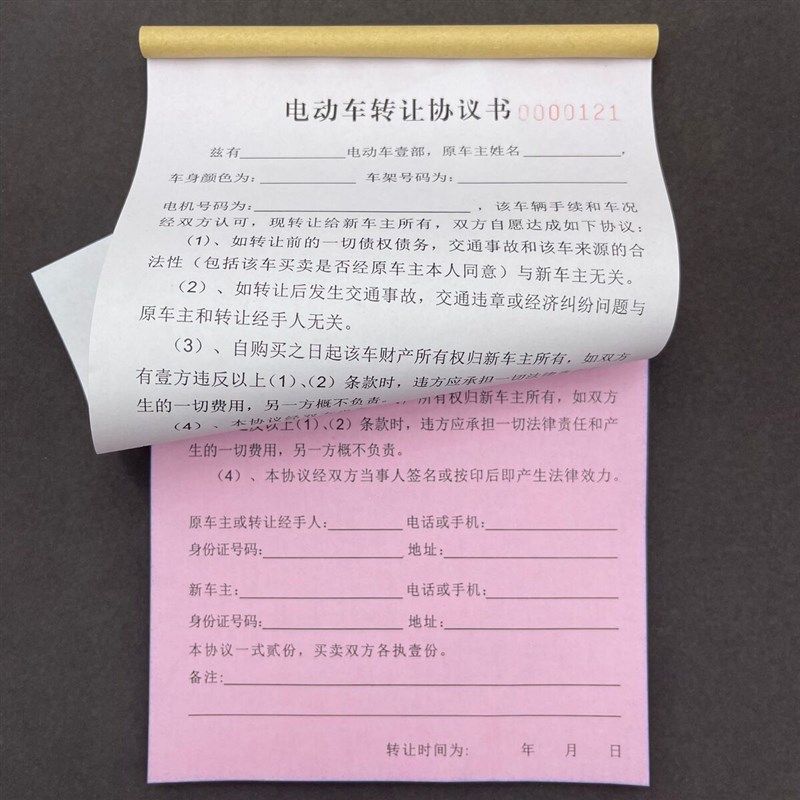 电动车转让协议书 0000121
兹有 电动车壹部，原车主姓名 ，
车身颜色为： 车架号码为：
电机号码为： ，该车辆手续和车况
经双方认可，现转让给新车主所有，双方自愿达成如下协议：
（1）、如转让前的一切债权债务，交通事故和该车来源的合
法性（包括该车买卖是否经原车主本人同意）与新车主无关。
（2）、如转让后发生交通事故，交通违章或经济纠纷问题与
原车主和转让经手人无关。
（3）、自购买之日起该车财产所有权归新车主所有，如双方
有壹方违反以上（1）、（2）条款时，违方应承担一切法律
生的一切费用，另一方概不负责。
（4）、本协议经双方
所有权归新车主所有，如双方
以上（1）、（2）条款时，违方应承担一切法律责任和产
生的一切费用，另一方概不负责。
（4）、本协议经双方当事人签名或按印后即产生法律效力。
原车主或转让经手人： 电话或手机：
身份证号码： 地址：
新车主： 电话或手机：
身份证号码： 地址：
本协议一式贰份，买卖双方各执壹份。
备注：
转让时间为： 年 月 日